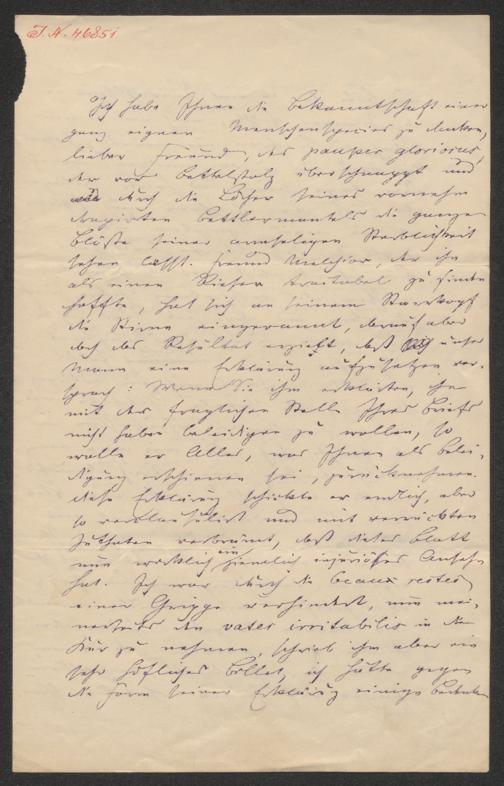 I. N. 46851
Ich habe Ihnen die Bekanntschaft einer
ganz eignen Menschenspecies zu danken,
lieber Freund, des pauper gloriosus,
der vor Bettelstolz überschnappt und
durch die Löcher seines vornehm
drapirten Bettlermantels die ganze
Blöße seiner armseligen Sterblichkeit
sehen läßt. Freund Melchior, der ihn
als einen Kiefer traitabel zu finden
hoffte, hat sich an seinem Starrkopf
die Stirne eingerannt, darauf aber
doch das Resultat erzielt, daß unser
Mann eine Erklärung aufzusetzen ver-
sprach: Wenn Sie ihm erklärten, ihn
mit der fraglichen Stelle Ihres Briefs
nicht haben beleidigen zu wollen, so
wolle er Alles, was Ihnen als Belei-
digung erschienen sei, zurücknehmen.
Diese Erklärung schickte er endlich, aber
so verklausulirt und mit verrückten
Zuthaten verbrämt, daß dieses Blatt
nun wirklich ein ziemlich injuriöses Ansehn
hat. Ich war durch die beaux restes
einer Grippe verhindert, nun mei-
nerseits den vates irritabilis in die
Kur zu nehmen, schrieb ihm aber ein
sehr höfliches Billet, ich hätte gegen
die Form seiner Erklärung einige Bedenken